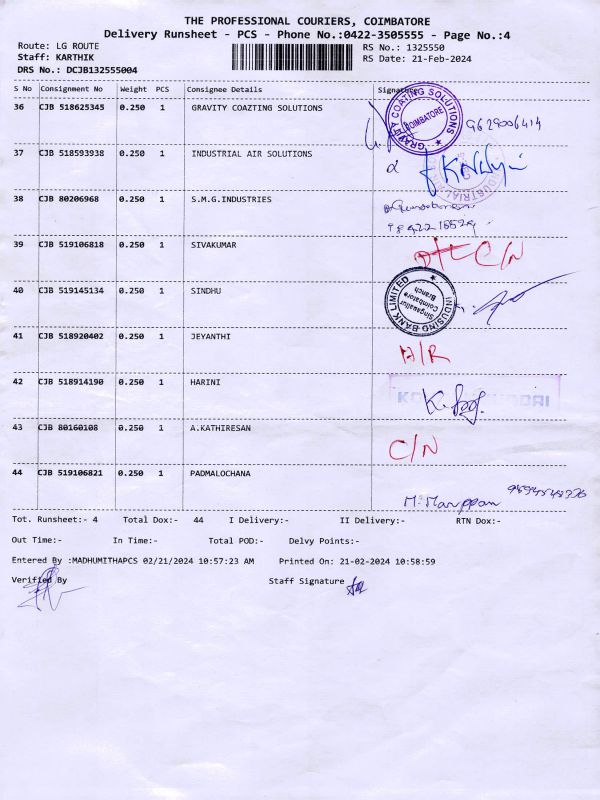 THE PROFESSIONAL COURIERS, COIMBATORE
Delivery Runsheet - PCS - Phone No.:0422-3505555 - Page No.:4
Route: LG ROUTE RS No.: 1325550
Staff: KARTHIK RS Date: 21-Feb-2024
DRS No.: DCJB132555004
S No Consignment No Weight PCS Consignee Details Signature
36 CJB 518625345 0.250 1 GRAVITY COAZTING SOLUTIONS
GRAVITY COATING SOLUTIONS
COIMBATORE
9629006414
37 CJB 518593938 0.250 1 INDUSTRIAL AIR SOLUTIONS
INDUSTRIAL
38 CJB 80206968 0.250 1 S.M.G.INDUSTRIES
39 CJB 519106818 0.250 1 SIVAKUMAR
C/N
40 CJB 519145134 0.250 1 SINDHU
INDUSIND BANK LIMITED
Singanallur
Coimbatore
Branch
41 CJB 518920402 0.250 1 JEYANTHI
A/R
42 CJB 518914190 0.250 1 HARINI
43 CJB 80160108 0.250 1 A.KATHIRESAN
C/N
44 CJB 519106821 0.250 1 PADMALOCHANA
Tot. Runsheet:- 4 Total Dox:- 44 I Delivery:- II Delivery:- RTN Dox:-
Out Time:- In Time:- Total POD:- Delvy Points:-
Entered By :MADHUMITHAPCS 02/21/2024 10:57:23 AM Printed On: 21-02-2024 10:58:59
Verified By Staff Signature